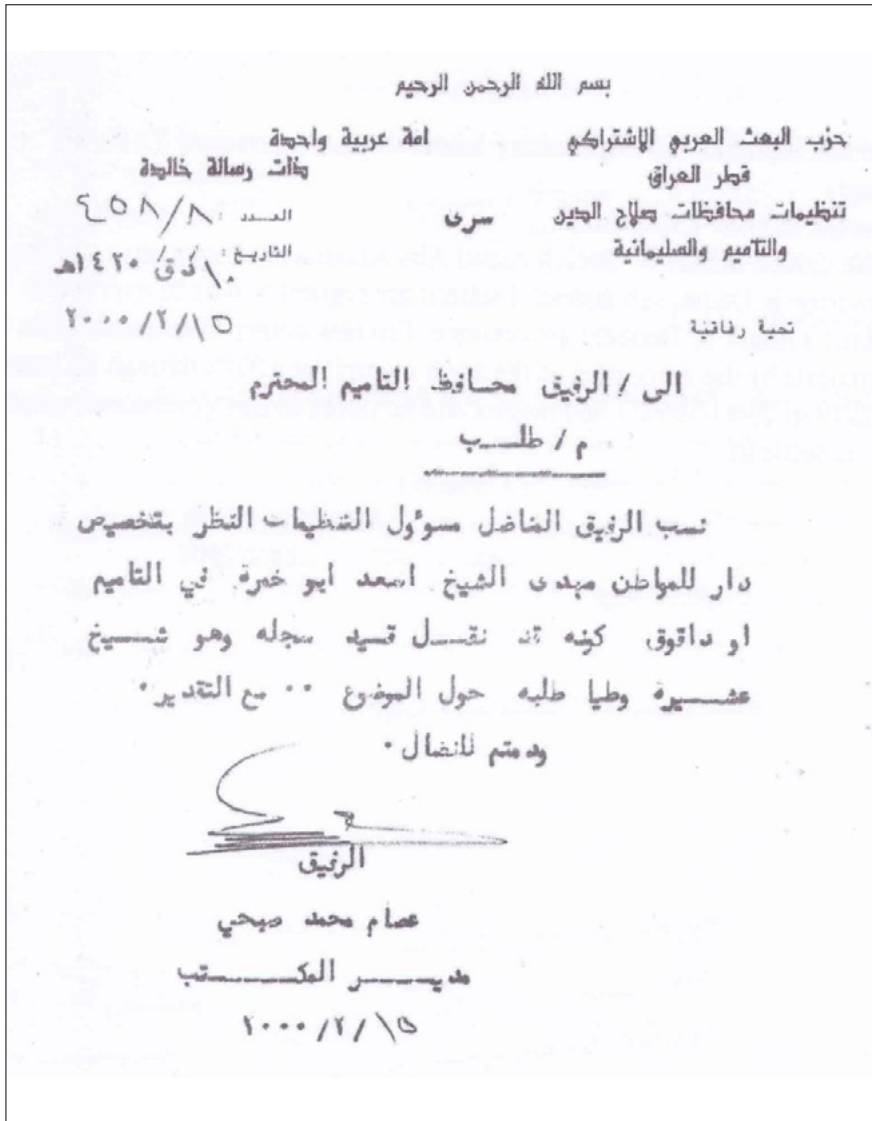 بسم الله الرحمن الرحيم
حزب البعث العربي الاشتراكي
قطر العراق
تنظيمات محافظات صلاح الدين
والتاميم والسليمانية
تحية رفاقية
سرى
امة عربية واحدة
ذات رسالة خالدة
العدد ٨/٤٥٨
التاريخ ١٠/ذق/١٤٢٠هـ
٢٠٠٠/٢/١٥
الى/ الرفيق محافظ التاميم المحترم
م/ طلب
نسب الرفيق الفاضل مسوؤل التنظيمات النظر بتخصيص
دار للمواطن مهدى الشيخ اسعد ابو خمرة في التاميم
او داقوق كونه قد نقل قيد سجله وهو شيخ
عشيرة وطيا طلبه حول الموضوع ٠٠ مع التقدير ٠
ودمتم للنضال ٠
الرفيق
عصام محمد صبحي
مديـر المكـتب
٢٠٠٠/٢/١٥